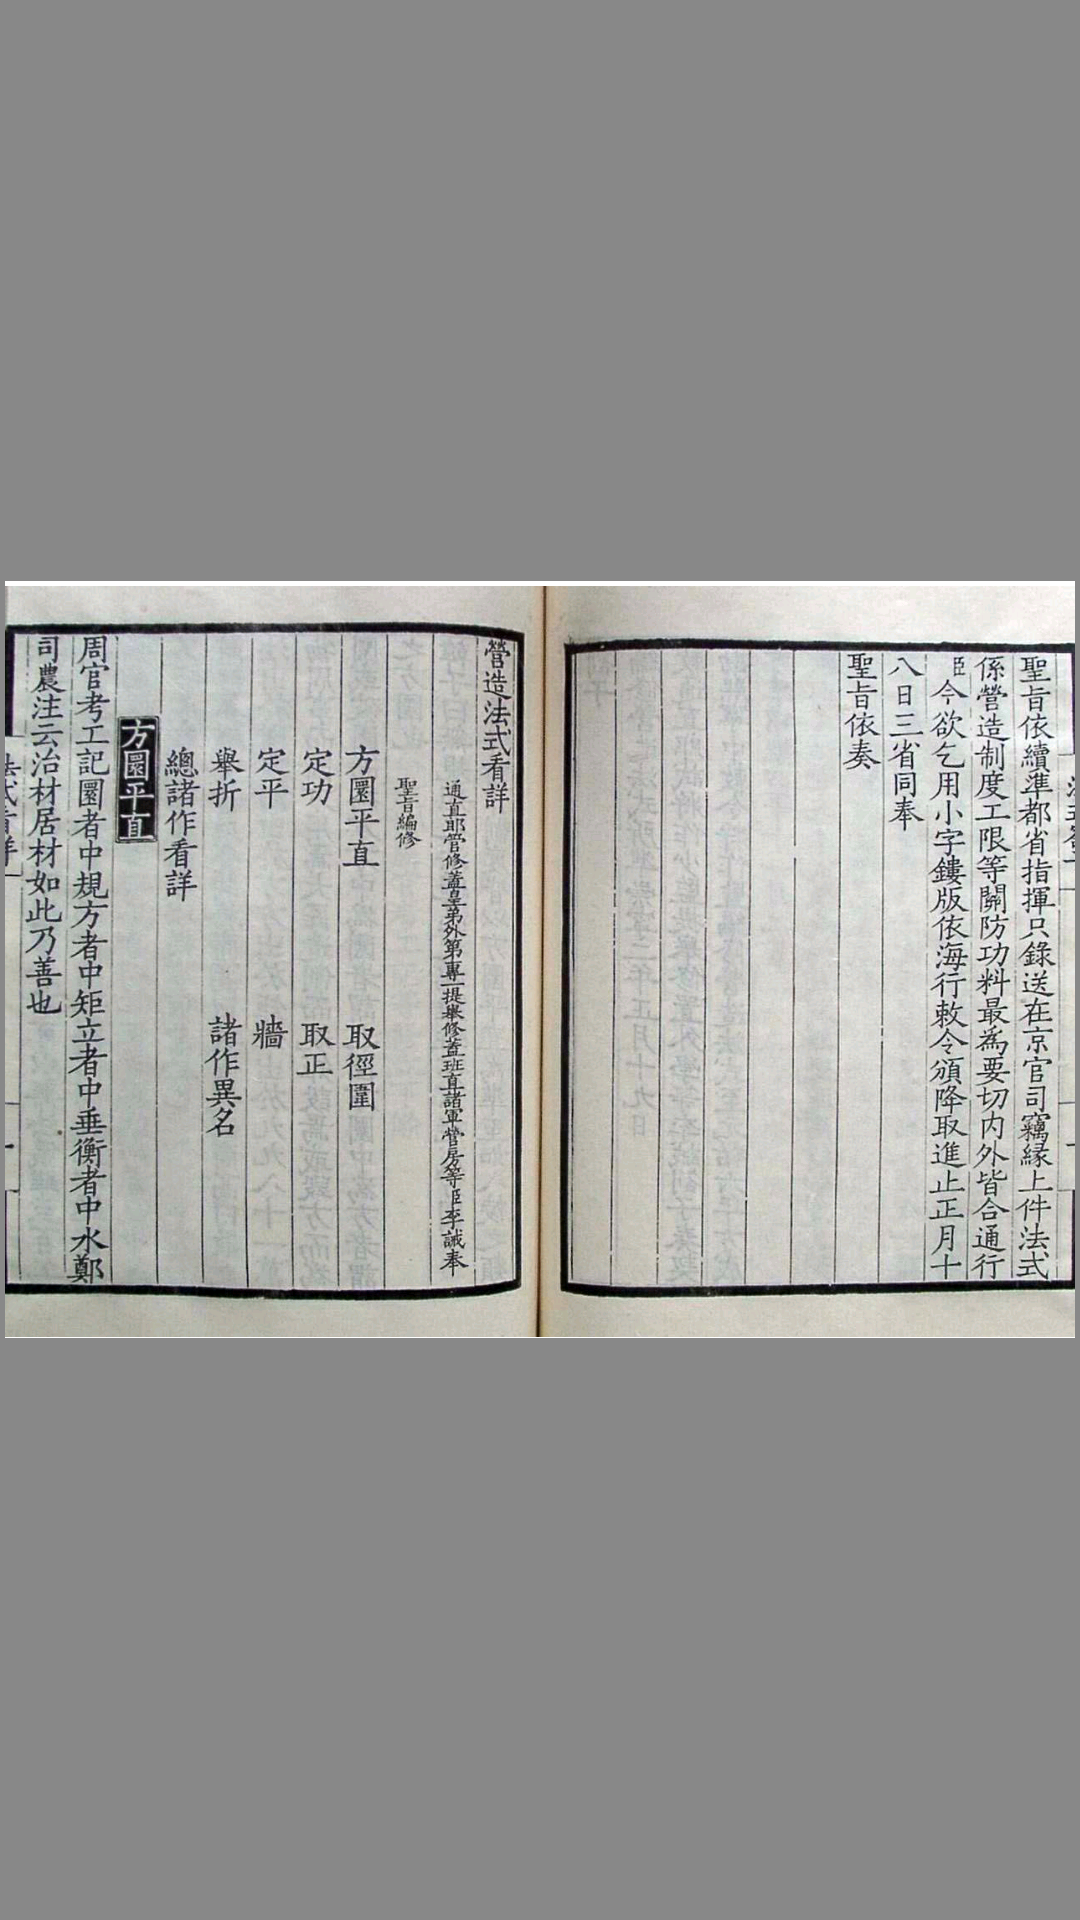 聖旨依續準都省指揮只錄送在京官司竊緣上件法式
係營造制度工限等關防功料最為要切內外皆合通行
臣今欲乞用小字鏤版依海行敕令頒降取進止正月十
八日三省同奉
聖旨依奏
營造法式看詳
通直郎管修蓋皇弟外第專一提舉修蓋班直諸軍營房等臣李誡奉
聖旨編修
方圜平直 取徑圍
定功 取正
定平 牆
舉折 諸作異名
總諸作看詳
方圜平直
周官考工記圜者中規方者中矩立者中垂衡者中水鄭
司農注云治材居材如此乃善也